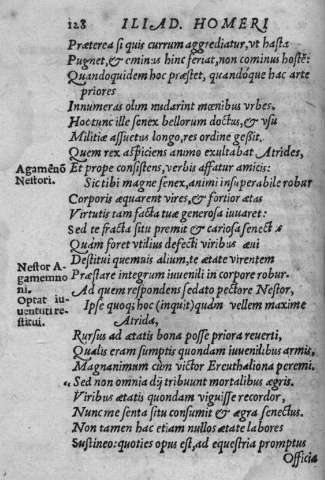 128 ILIAD. HOMERI
Præterea si quis currum aggrediatur, vt hasta
Pugnet, & eminus hinc feriat, non cominus hostē:
Quandoquidem hoc præstet, quandóque hac arte
priores
Innumeras olim nudarint mœnibus vrbes.
Hoc tunc ille senex bellorum doctus, & vsu
Militiæ assuetus longo, res ordine gessit.
Quem rex aspiciens animo exultabat Atrides,
Agamēnō
Nestori.
Et prope consistens, verbis affatur amicis:
Sic tibi magne senex, animi insuperabile robur
Corporis æquarent vires, & fortior ætas
Virtutis tam facta tuæ generosa iuuaret:
Sed te fracta situ premit & cariosa senectæ
Quàm foret vtilius defecti viribus æui
Destitui quemuis alium, te ætate virentem
Præstare integrum iuuenili in corpore robur.
Nestor A-
gamemno
ni.
Optat iu-
uentuti re-
stitui.
Ad quem respondens sedato pectore Nestor,
Ipse quoq; hoc (inquit) quàm vellem maxime
Atrida,
Rursus ad ætatis bona posse priora reuerti,
Qualis eram sumptis quondam iuuenilibus armis,
Magnanimum cùm victor Ereuthaliona peremi.
Sed non omnia dij tribuunt mortalibus ægris.
Viribus ætatis quondam viguisse recordor,
Nunc me senta situ consumit & ægra senectus.
Non tamen hac etiam nullos ætate labores
Sustineo: quoties opus est, ad equestria promptus
Officia